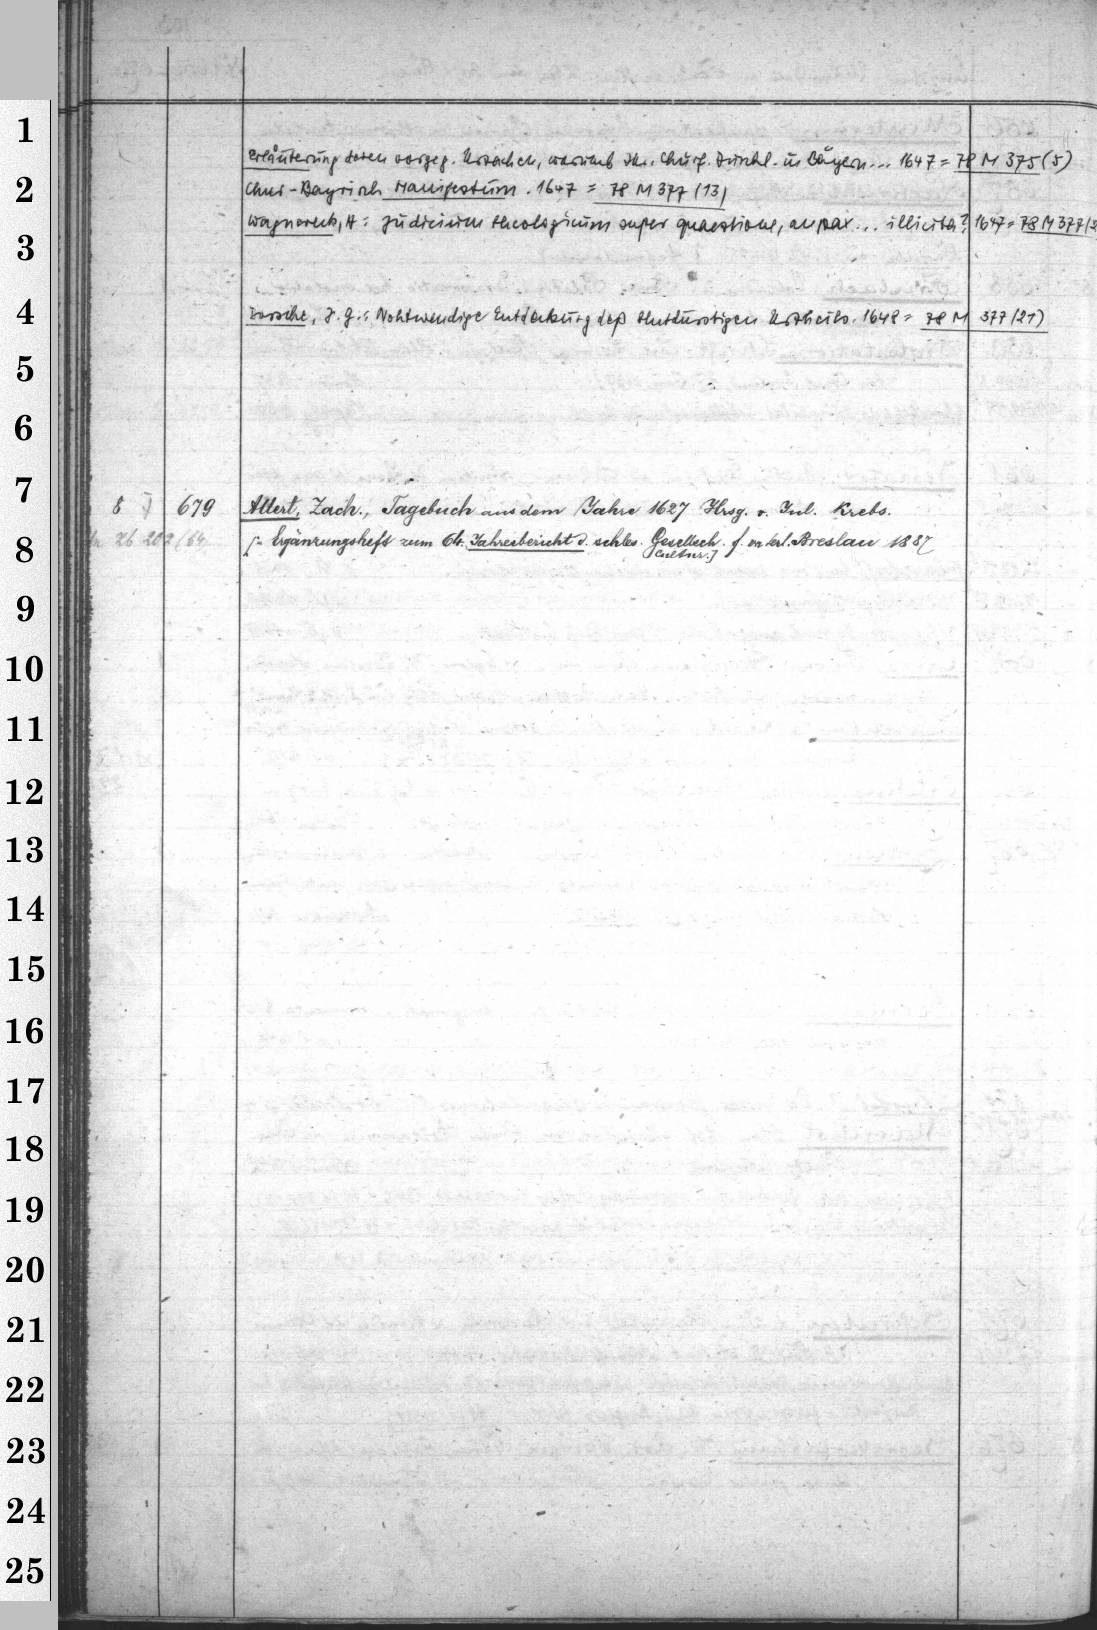 1
Erläuterung deren vorgeg. Ursachen, warumb Ihr. Churf. Durchl. in Bäyern... 1647 = 78 M 375 (5)
2
Chur-Bayrisch Manifestum. 1647 = 78 M 377 (13)
Wagnereck, H: Judicium theologicum super quaestione, an pax... illicita? 1647 = 78 M 377/2
3
4
Dorsche, J. G.: Nohtwendige Entdeckung deß blutdurstigen Urtheils. 1648 = 78 M 377 (21)
5
6
7
8 679 Allert, Zach., Tagebuch aus dem Jahre 1627 Hrsg. v. Jul. Krebs.
8
26 202/64 [= Ergänzungsheft zum 64. Jahresbericht d. schles. Gesellsch. f. vaterl. Breslau 1887
Cultur.]
9
10
11
12
13
14
15
16
17
18
19
20
21
22
23
24
25